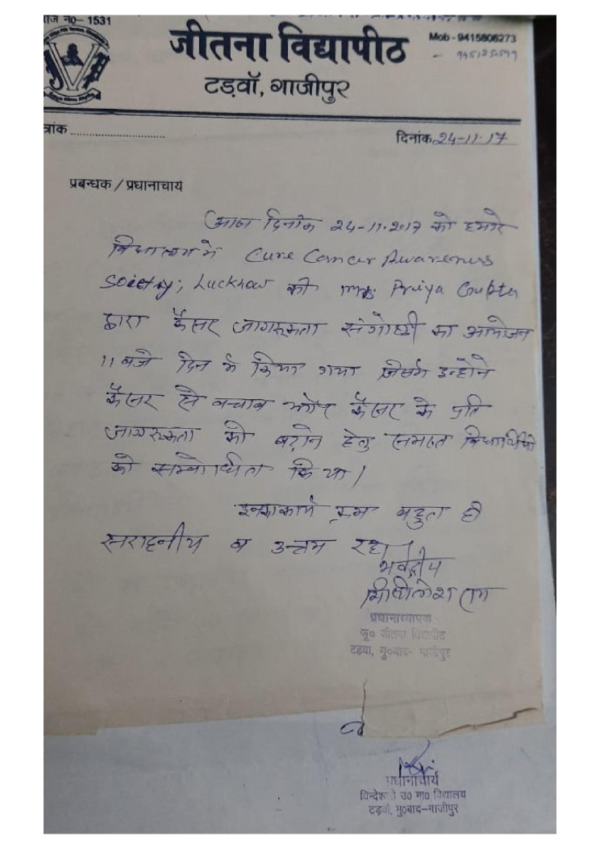 जि नo- 1531
जीतना विद्यापीठ
Mob - 9415806273
टड़वाँ, गाजीपुर
त्रांक
दिनांक 24-11-17
प्रबन्धक / प्रधानाचार्य
आज दिनांक 24-11-2017 को हमारे
विद्यालय में Cure Cancer Awareness
Society, Lucknow की Mrs Priya Gupta
द्वारा कैंसर जागरूकता संगोष्ठी का आयोजन
11 बजे दिन में किया गया जिसमें इन्होंने
कैंसर से बचाव और कैंसर के प्रति
जागरूकता को बढ़ाने हेतु समस्त विद्यार्थियों
को सम्बोधित किया।
बहुत ही
सराहनीय व उत्तम रहा।
भवदीय
राम
प्रधानाध्यापक
जू० जीतना विद्यापीठ
टड़वा, मु०बाद- गाजीपुर
प्रधानाचार्य
उ० मा० विद्यालय
टड़वाँ, मु०बाद-गाजीपुर